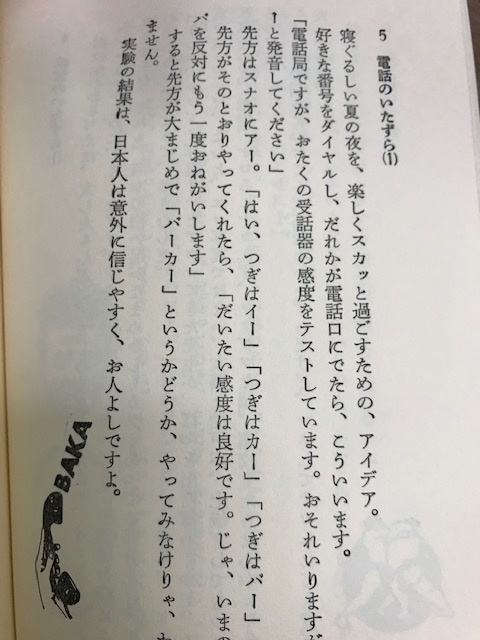 5 電話のいたずら(1)
寝ぐるしい夏の夜を、楽しくスカッと過ごすための、アイデア。
好きな番号をダイヤルし、だれかが電話口にでたら、こういいます。
「電話局ですが、おたくの受話器の感度をテストしています。おそれいりますが
ーと発音してください」
先方はスナオにアー。「はい、つぎはイー」「つぎはカー」「つぎはバー」
先方がそのとおりやってくれたら、「だいたい感度は良好です。じゃ、いまの
バを反対にもう一度おねがいします」
すると先方が大まじめで「バーカー」というかどうか、やってみなけりゃ、わ
ません。
実験の結果は、日本人は意外に信じやすく、お人よしですよ。
BAKA